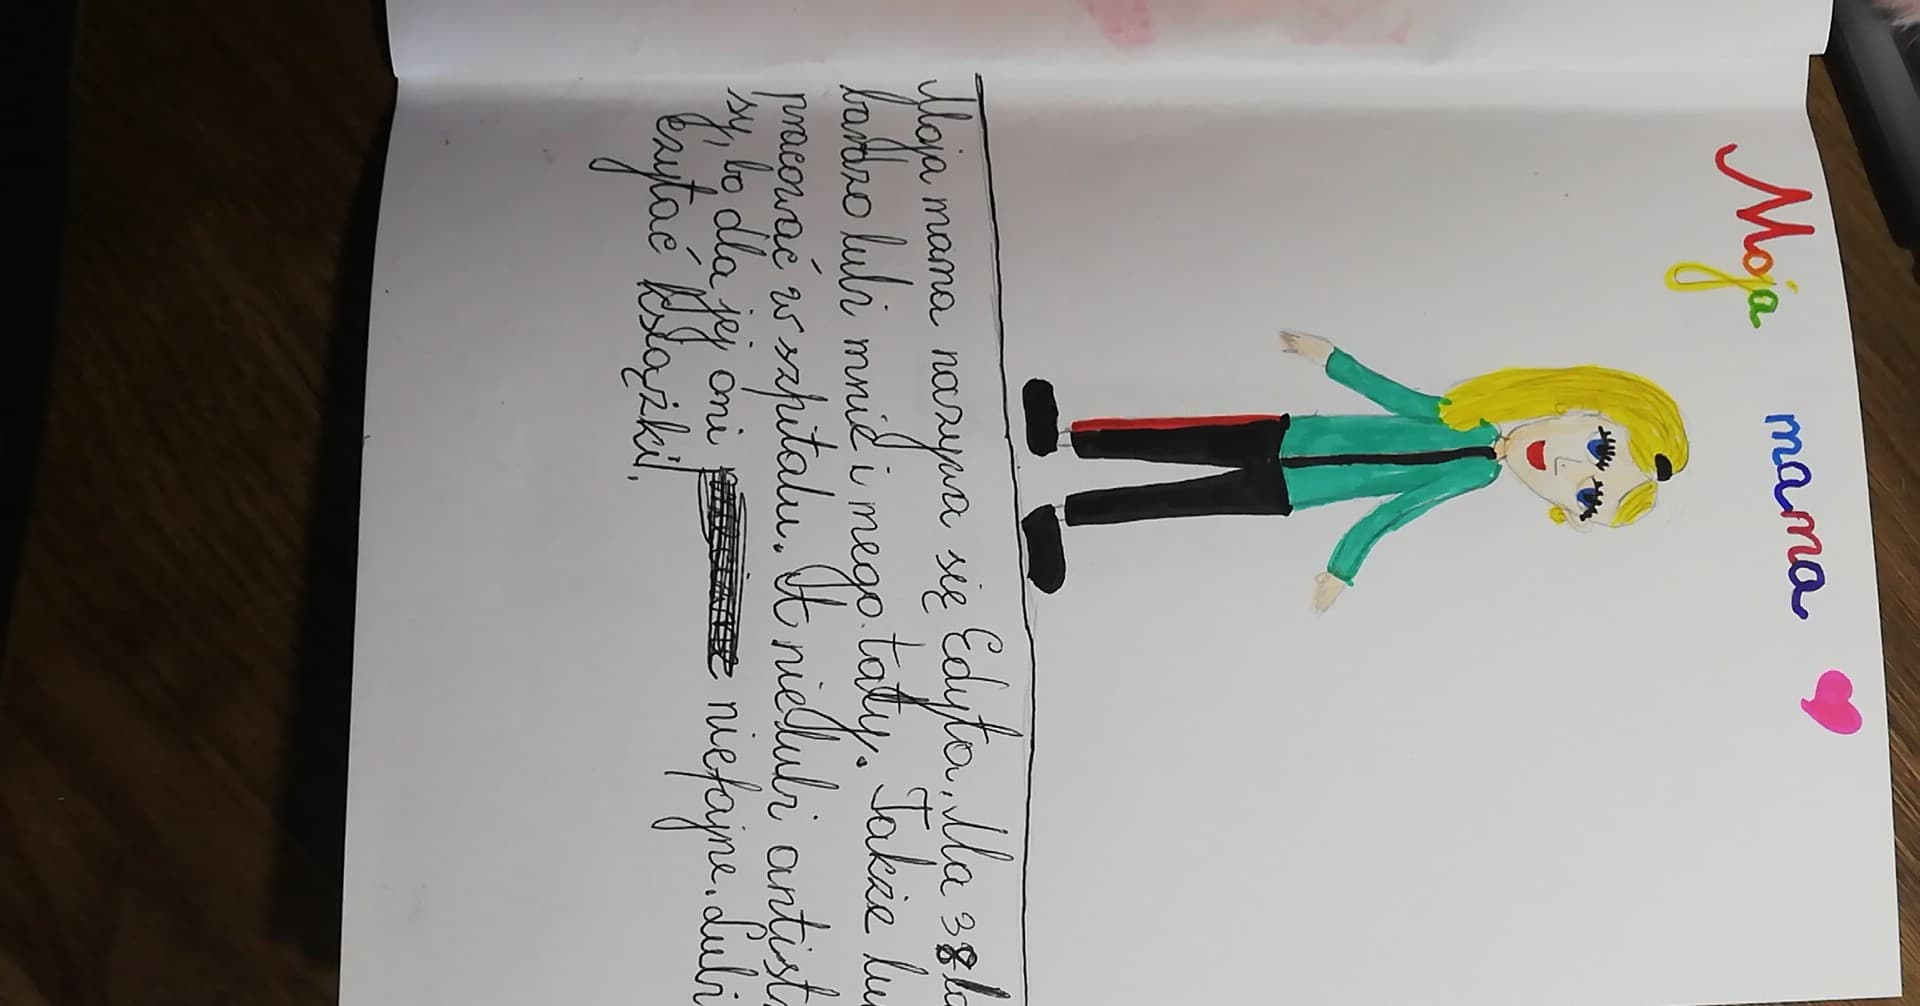 Moja mama
Moja mama nazywa się Edyta. Ma 38
bardzo lubi mnie i mego taty. Także
pracować w szpitalu. A nielubi
sy, bo dla jej oni niefajne. Lubi
czytać książki!